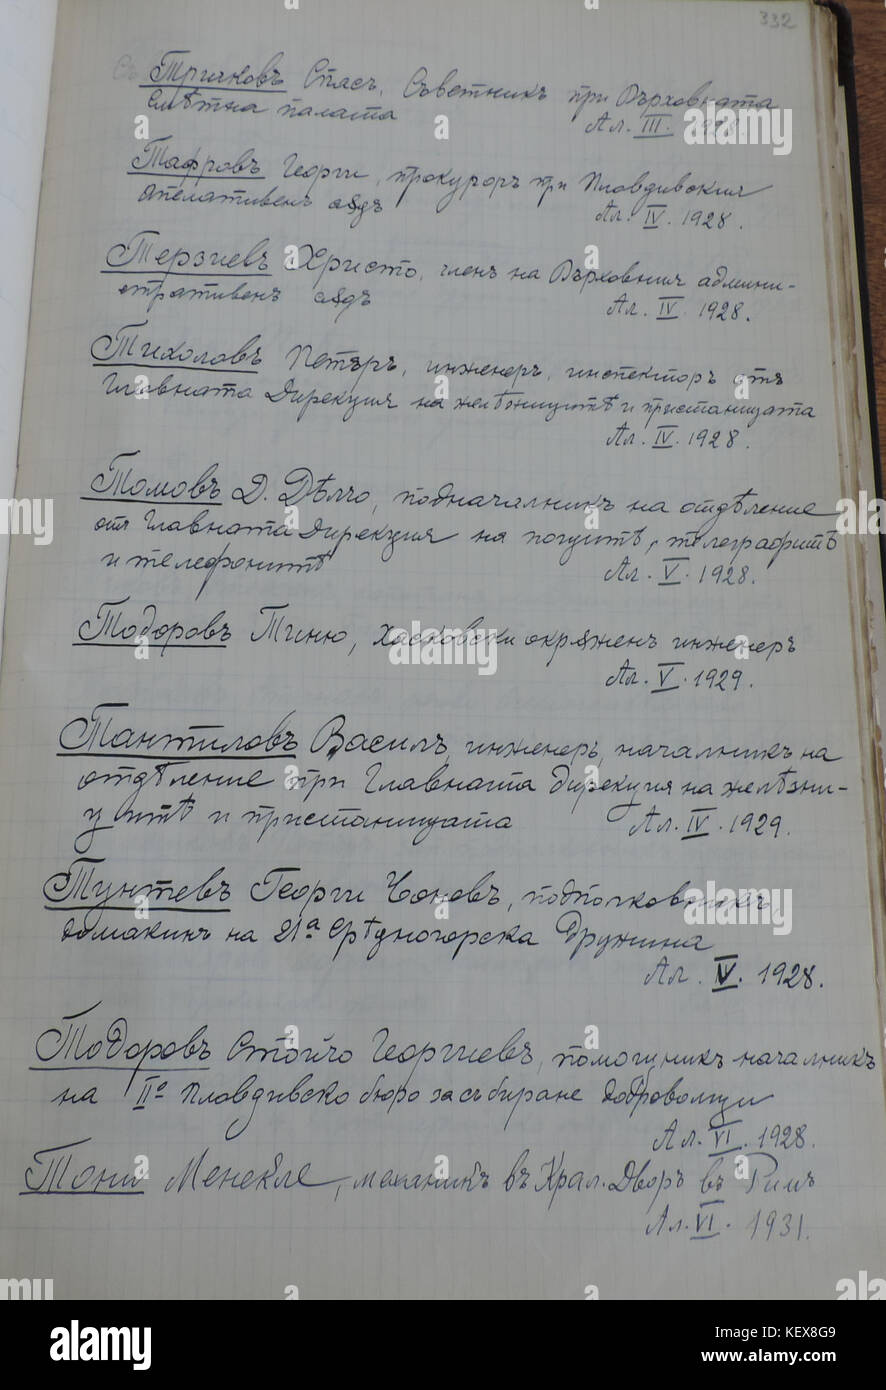 332
Тричковъ Спасъ, Съветникъ при Върховната
Смѣтна палата
Ал. III. 1928.
Тафровъ Георги, прокуроръ при Пловдивския
Апелативенъ сѫдъ
Ал. IV. 1928.
Терзиевъ Христо, членъ на Върховния админи-
стративенъ сѫдъ
Ал. IV. 1928.
Тихоловъ Петъръ, инженеръ, инспекторъ отъ
Главната Дирекция на желѣзницитѣ и пристанищата
Ал. IV. 1928.
Томовъ Д. Дѣлчо, подначалникъ на отдѣление
от Главната Дирекция на пощитѣ, телеграфитѣ
и телефонитѣ
Ал. V. 1928.
Тодоровъ Тиню, Хасковски окрѫженъ инженеръ
Ал. V. 1929.
Пантиловъ Василъ, инженеръ, началникъ на
отдѣление при Главната Дирекция на желѣзни-
цитѣ и пристанищата
Ал. IV. 1929.
Тунтевъ Георги Чоневъ, подполковникъ,
домакинъ на 21а Срѣдногорска Дружина
Ал. IV. 1928.
Тодоровъ Стойчо Георгиевъ, помощникъ началникъ
на IIо Пловдивско бюро за събиране доброволци
Ал. VI. 1928.
Тони Менекле, механикъ въ Крал. Дворъ въ Римъ
Ал. VI. 1931.
alamy
Image ID: KEX8G9
www.alamy.com